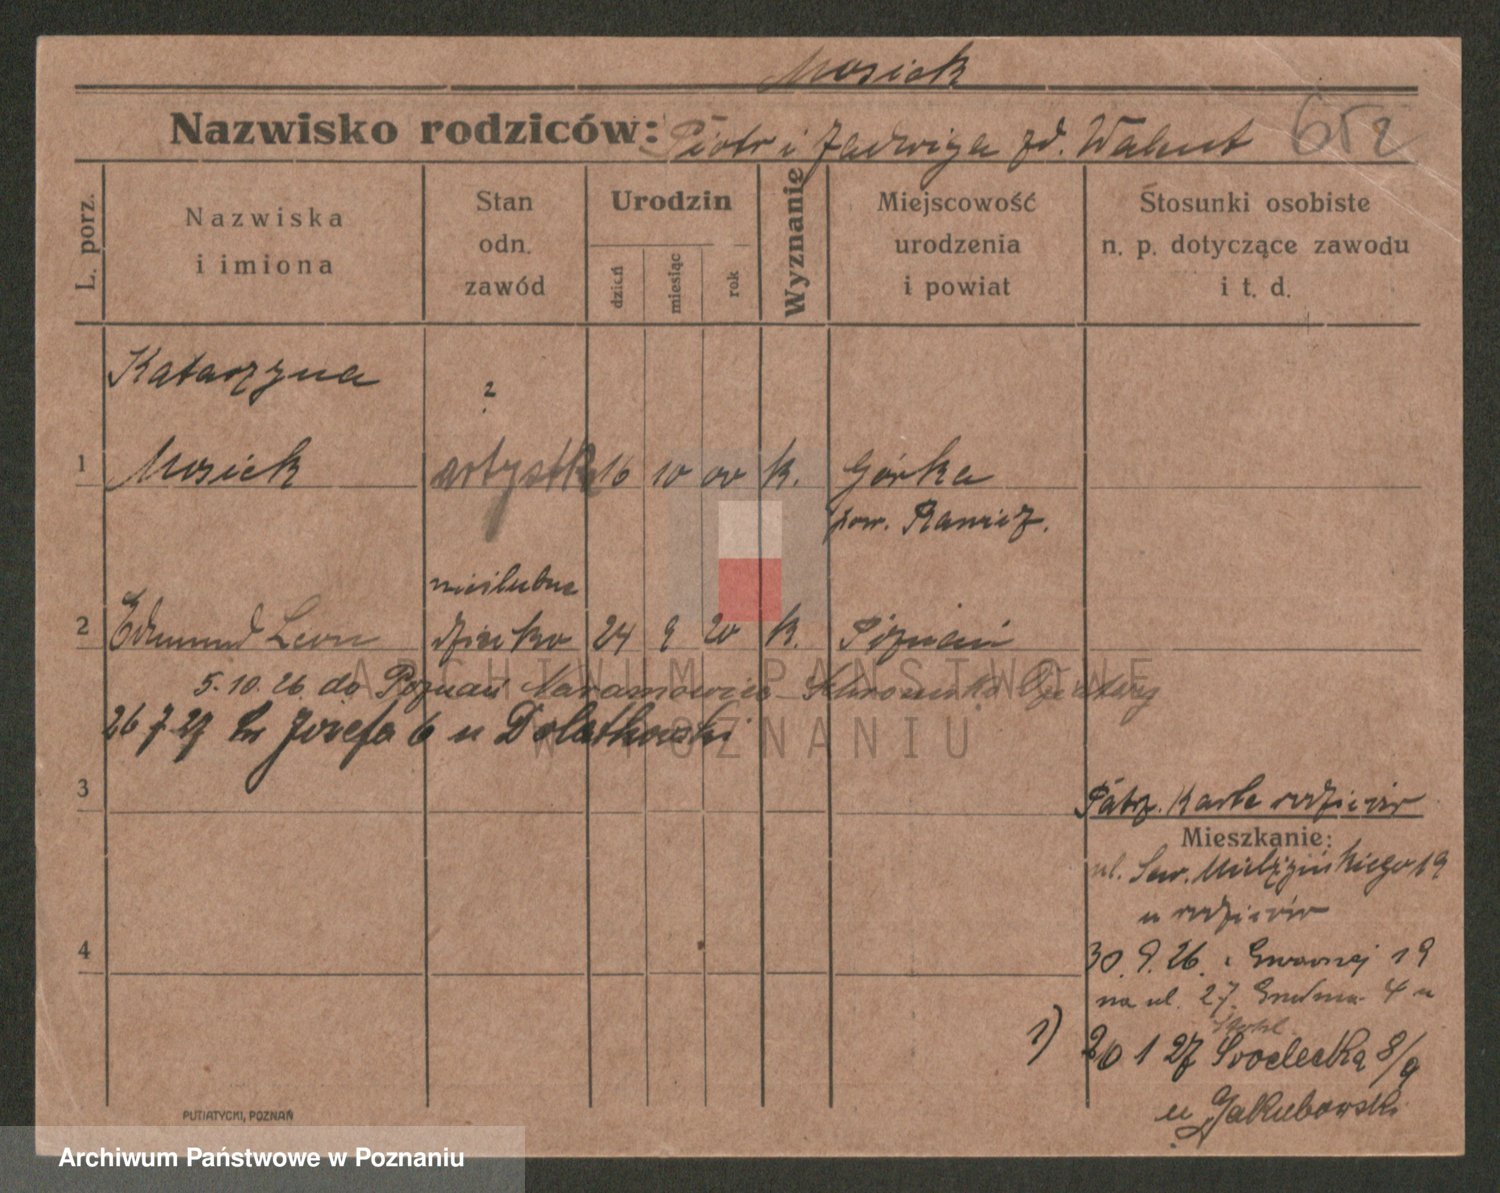 Mosiek
Nazwisko rodziców: Piotr i Jadwiga zd. Walent 652
L. porz.
Nazwiska i imiona
Stan odn. zawód
Urodzin
dzień
miesiąc
rok
Wyznanie
Miejscowość urodzenia i powiat
Stosunki osobiste n. p. dotyczące zawodu i t. d.
Katarzyna
1 Mosiek artystka 16 10 00 k. Górka
pow. Rawicz.
nieślubne
2 Edmund Leon dziecko 24 9 20 k. Poznań
5.10.26 do Poznań Naramowice
26 7 27 Józefa 6 u Dolatkowski
3
Patrz. Karte rodziców
Mieszkanie:
ul. Sew. Mielżyńskiego 19
u rodziców
4
30.9.26. Gwarnej 19
na ul. 27. Grudnia 4 u
1) 20 1 27 8/9
u Jakubowski
PUTIATYCKI, POZNAŃ
ARCHIWUM PAŃSTWOWE
W POZNANIU
Archiwum Państwowe w Poznaniu